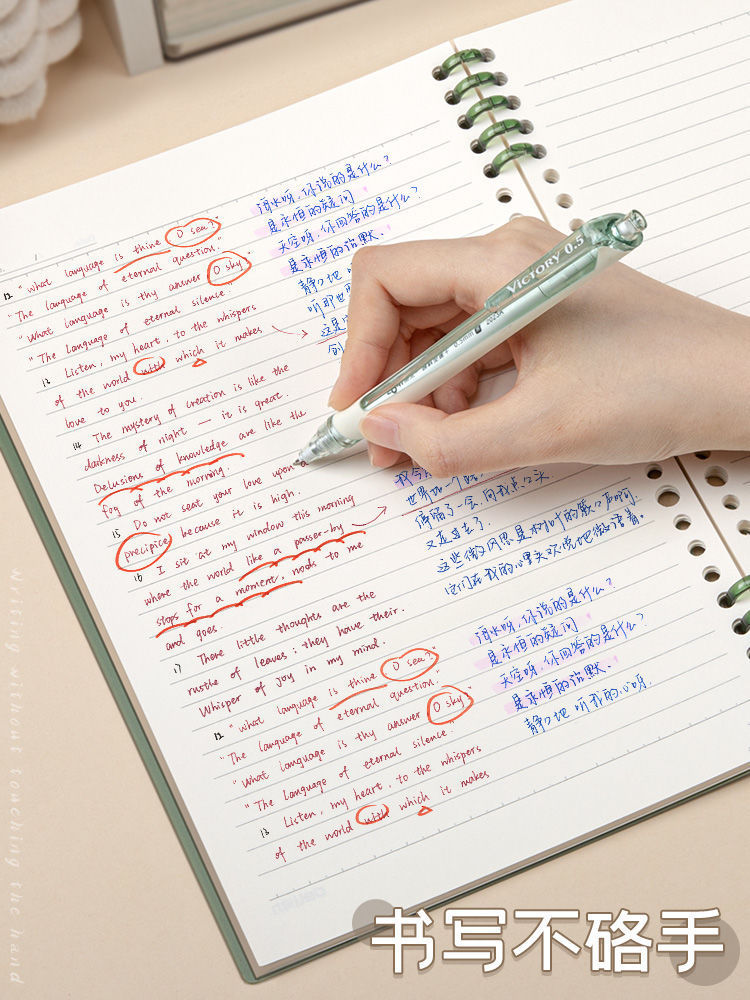 12 "What language is thine O sea?"
"The language of eternal question."
"What language is thy answer O sky
"The Language of eternal silence.
13 Listen, my heart, to the whispers
of the world with which it makes
love to you.
14 The mystery of creation is like the
darkness of night — it is great.
Delusions of knowledge are like the
fog of the morning.
15 Do not seat your love upon a
precipice because it is high.
16 I sit at my window this morning
where the world like a passer-by
stops for a moment, nods to me
and goes.
17 There little thoughts are the
rustle of leaves; they have their.
Whisper of joy in my mind.
12 "what language is thine O sea?"
"The language of eternal question."
"What language is thy answer O sky
"The Language of eternal silence.
13 Listen, my heart, to the whispers
of the world with which it makes
海水呀,你说的是什么?
是永恒的疑问
天空呀,你回答的是什么?
是永恒的沉默.
静静地
听那世
这是
创
我今
世界如一个路
停留了一会,向我点点头
又走过去了.
这些微思是树叶的簌簌声啊
它们在我的心里欢悦地微语着.
海水呀,你说的是什么?
是永恒的疑问
天空呀,你回答的是什么?
是永恒的沉默.
静静地 听 我的 心呀.
VICTORY 0.5
0.5mm
Writing without touching the hand
书写不硌手